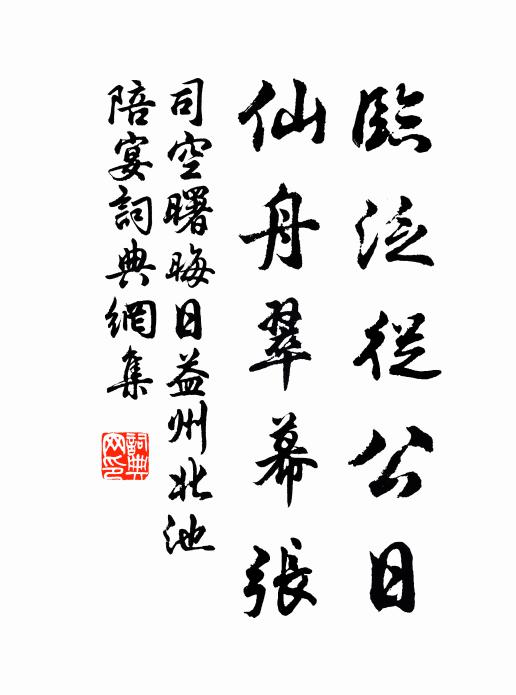 臨泛從公日
仙舟翠幕張
司空曙晦日益州北池
陪宴詞典網集
詞典網印